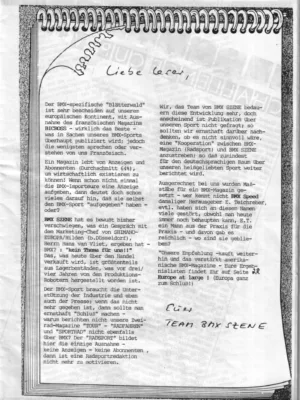 Liebe Leser,
Der BMX-spezifische "Blätterwald"
ist sehr bescheiden auf unserem
europäischen Kontinent, mit Aus-
nahme des französischen Magazins
BICROSS - wirklich das Beste -
was in Sachen unseres BMX-Sports
überhaupt publiziert wird; jedoch
die wenigsten sprechen oder ver-
stehen von uns Französisch.
Ein Magazin lebt von Anzeigen und
Abonnenten (durchschnitt. 1:4),
um wirtschaftlich existieren zu
können! Wenn schon nicht einmal
die BMX-Importeure eine Anzeige
aufgeben, dann deutet doch schon
vieles darauf hin, daß sie selbst
den BMX-Sport "aufgegeben" haben -
oder?
BMX SZENE hat es bewußt bisher
verschwiegen, was ein Gespräch mit
dem Marketing-Chef von
EUROPA/Bilden (b.Düsseldorf),
Herrn Hans van Vliet, ergeben hat -
BMX? = "kein Thema für uns!"
Das, was heute über den Handel
verkauft wird, ist größtenteils
aus Lagerbestände, was vor drei/
vier Jahren von den Produktions-
Robotern hergestellt worden ist.
Der BMX-Sport braucht die Unter-
stützung der Industrie und eben
auch der Presse; wenn das nicht
mehr gegeben ist, dann sollte man
ernsthaft "Schluß" machen -
warum berichten nicht unsere Zwei-
rad-Magazine "TOUR" - "RADFAHREN"
und "SPORTRAD" nicht ebenfalls
über BMX? Der "RADSPORT" bildet
hier die einzige Ausnahme -
keine Anzeigen - keine Abonnenten,
dann ist eine Radsportredaktion
nicht mehr zu motivieren.
Wir, das Team von BMX SZENE bedau-
ern diese Entwicklung sehr, doch
anscheinend ist Publikation über
unseren Sport nicht gefragt; so
sollten wir ernsthaft darüber nach-
denken, ob es nicht sinnvoll wäre,
eine "Kooperation" zwischen BMX-
Magazin (Radsport) und BMX SZENE
anzustreben; so daß zumindest
für den deutschsprachigen Raum über
unseren heißgeliebten Sport weiter
berichtet wird.
Ausgerechnet bei uns wurden Maß-
stäbe für ein BMX-Magazin ge-
setzt - wer kennt nicht BMX Speed
damaliger Herausgeber E. Reichreiber,
evtl. haben sich an diesem Namen
viele gestört, obwohl man heute
immer noch behaupten kann, E.T.
ein Mann aus der Praxis für die
Praxis - und davon gab es
reichlich - wo sind sie geblie-
ben?
"Unsere Empfehlung -kauft weiter-
hin und das verstärkt amerika-
nische BMX-Magazine - Euer Ori-
ginalisten findet Ihr auf Seite 28
Europe at large ! (Europa ganz
zum Schluß)!
TEAM BMX SZENE